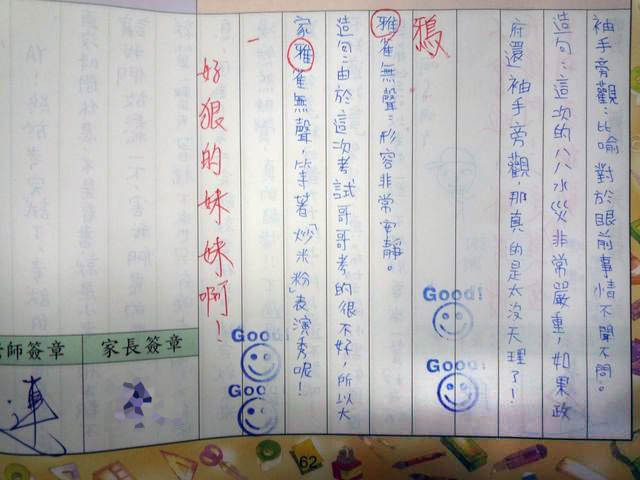 袖手旁觀：比喻對於眼前事情不聞不問。
造句：這次的八八水災非常嚴重，如果政
府還袖手旁觀，那真的是太沒天理了！
Good!
鴉
雅雀無聲：形容非常安靜。
造句：由於這次考試哥哥考的很不好，所以大
家雅雀無聲，等著「炒米粉」表演秀呢！
Good!
Goo
好狠的妹妹啊！
家長簽章
師簽章
62